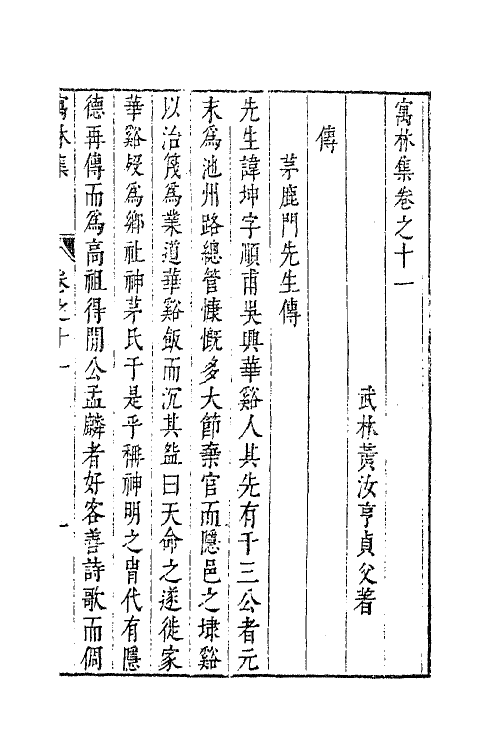 寓林集卷之十一
武林黃汝亨貞父著
傳
茅鹿門先生傳
先生諱坤字順甫吳興華谿人其先有千三公者元
末為池州路總管慷慨多大節棄官而隱邑之埭谿
以治筏為業道華谿飯而沉其盌曰天命之遂徙家
華谿歿為鄉社神茅氏于是乎稱神明之胄代有隱
德再傳而為高祖得閒公孟麟者好客善詩歌而倜
寓林集 卷之十一 一